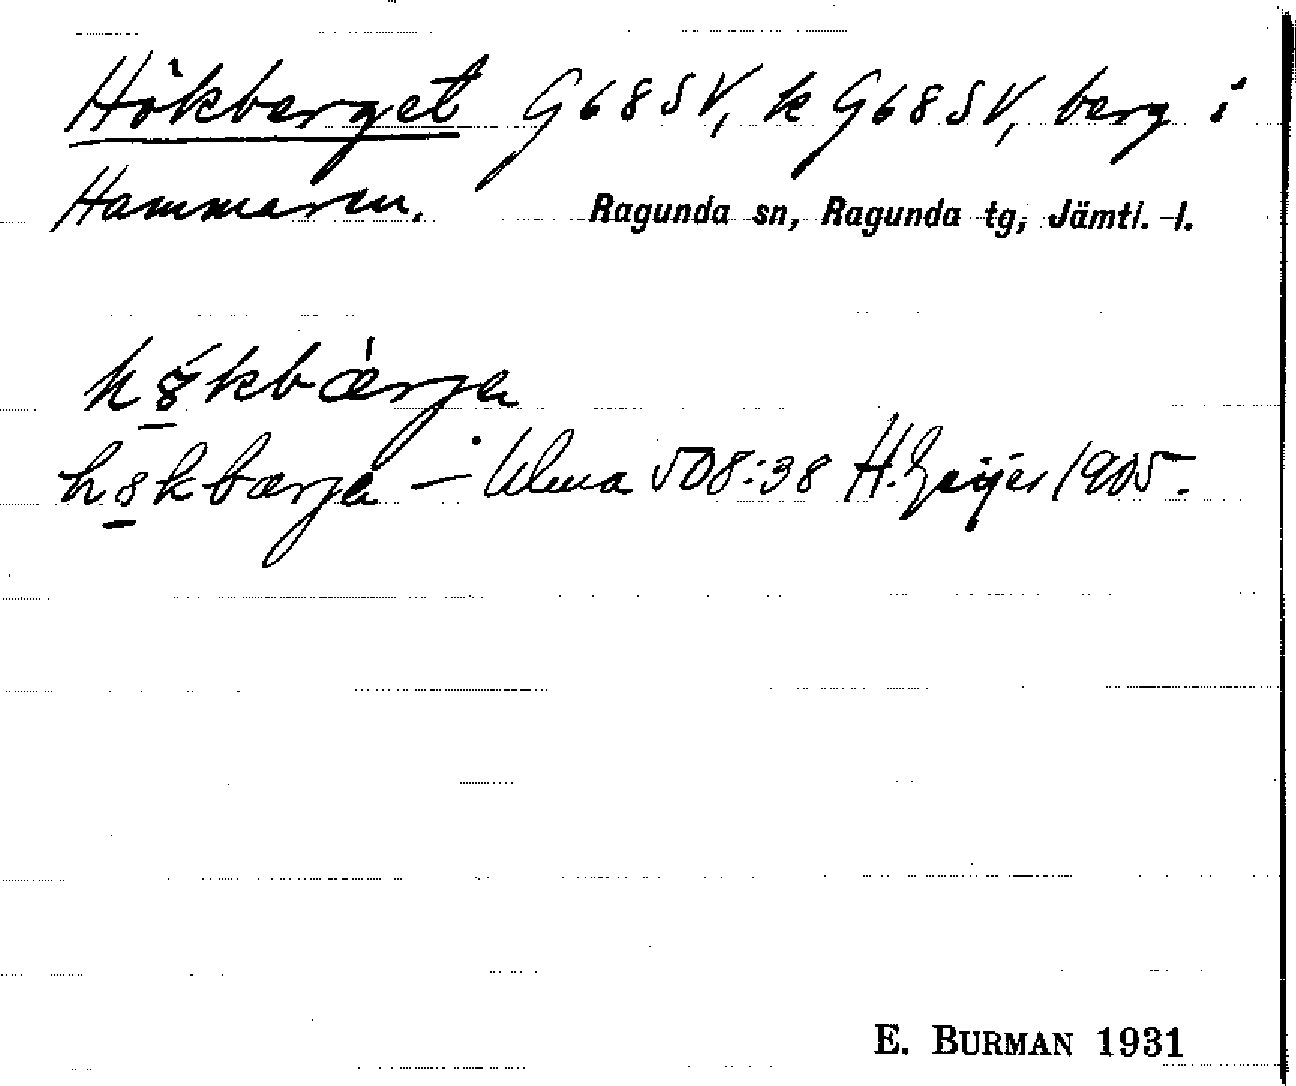 Hökberget G 68 SV, k G 68 SV, berg i
Hammaren. Ragunda sn, Ragunda tg, Jämtl. l.
h8̱́kbæ̀rja
h8̱kbærjȧ — Ulma 508:38 H. Geijer 1905.
E. BURMAN 1931